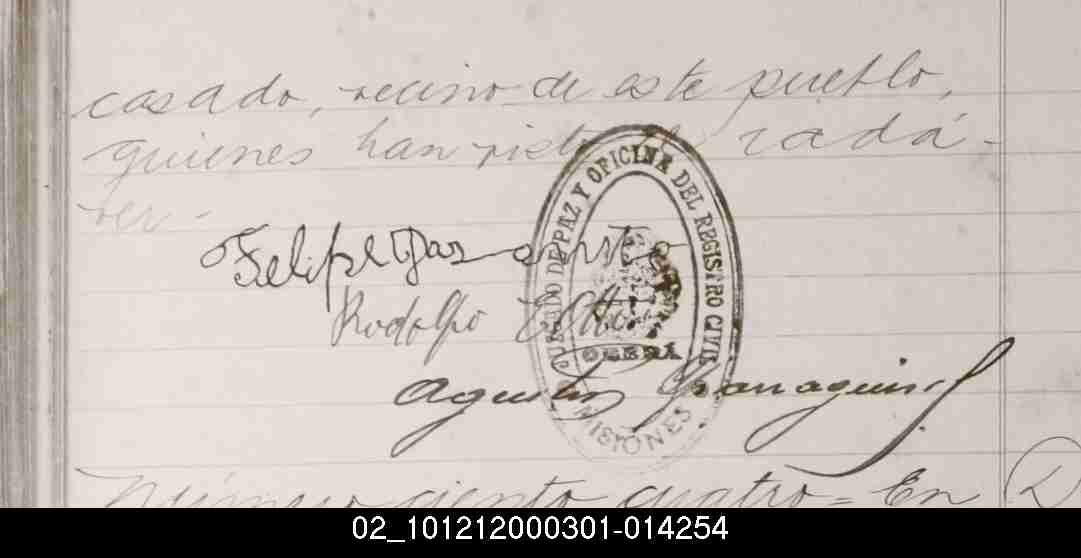 casado, vecino de este pueblo,
quienes han visto el cadá-
ver.-
Felipe
Rodolfo
JUZGADO DE PAZ Y OFICINA DEL REGISTRO CIVIL
OBERÁ
MISIONES
Agustin
Número ciento cuatro = En
02_101212000301-014254